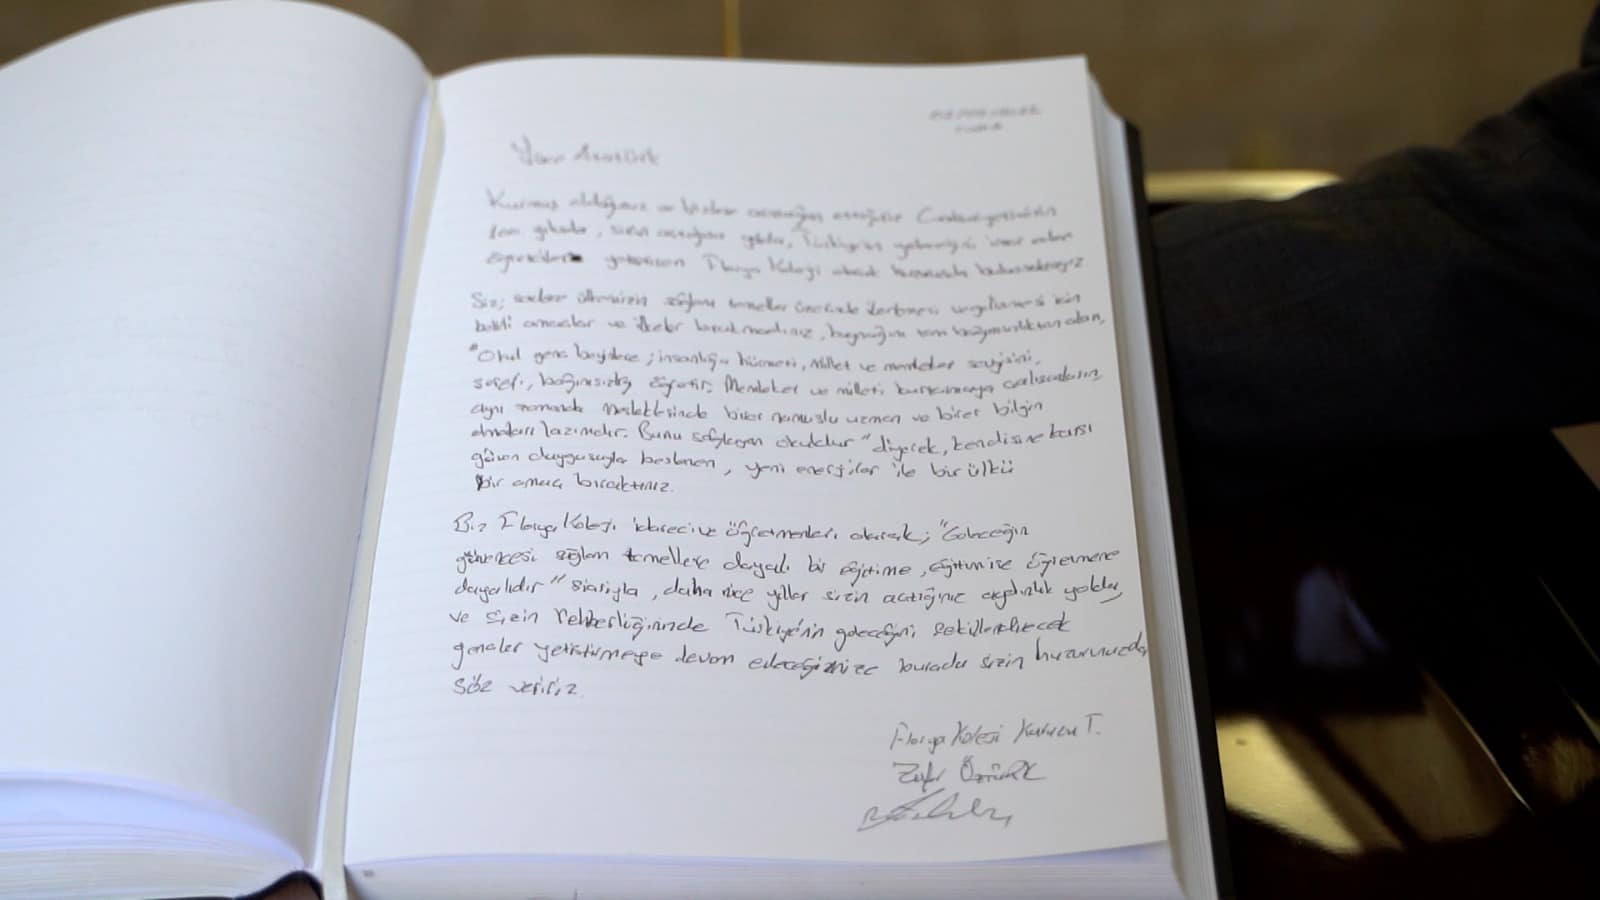 Yüce Atatürk
Kurmuş olduğunuz ve bizlere armağan ettiğiniz Cumhuriyetimizin
olarak huzurunuzda bulunmaktayız
Siz; sadece ülkemizin sağlam temeller üzerinde ilerlemesi için
belli amaçlar ve ilkeler
"Okul genç beyinlere; insanlığa hürmeti, millet ve memleket sevgisini,
şerefi, bağımsızlığı öğretir. Memleket ve milleti kurtarmaya çalışanların
aynı zamanda mesleklerinde birer namuslu uzmen ve birer bilgin
olmaları lazımdır. Bunu sağlayan okuldur" diyerek, kendisine karşı
güven duygusuyla beslenen, yeni enerjiler ile bir ülkü
bir amaç bıraktınız.
Biz Florya Koleji idareci ve öğretmenleri olarak; "Geleceğin
güvencesi sağlam temellere dayalı bir eğitime, eğitim ise öğretmene
dayalıdır" şiarıyla, daha nice yıllar sizin açtığınız aydınlık yolda,
ve sizin rehberliğinizde Türkiye'nin geleceğini şekillendirecek
gençler yetiştirmeye devam edeceğimize burada sizin huzurunuzda
söz veririz.
Florya Koleji Kurucu T.
Zafer Öztürk